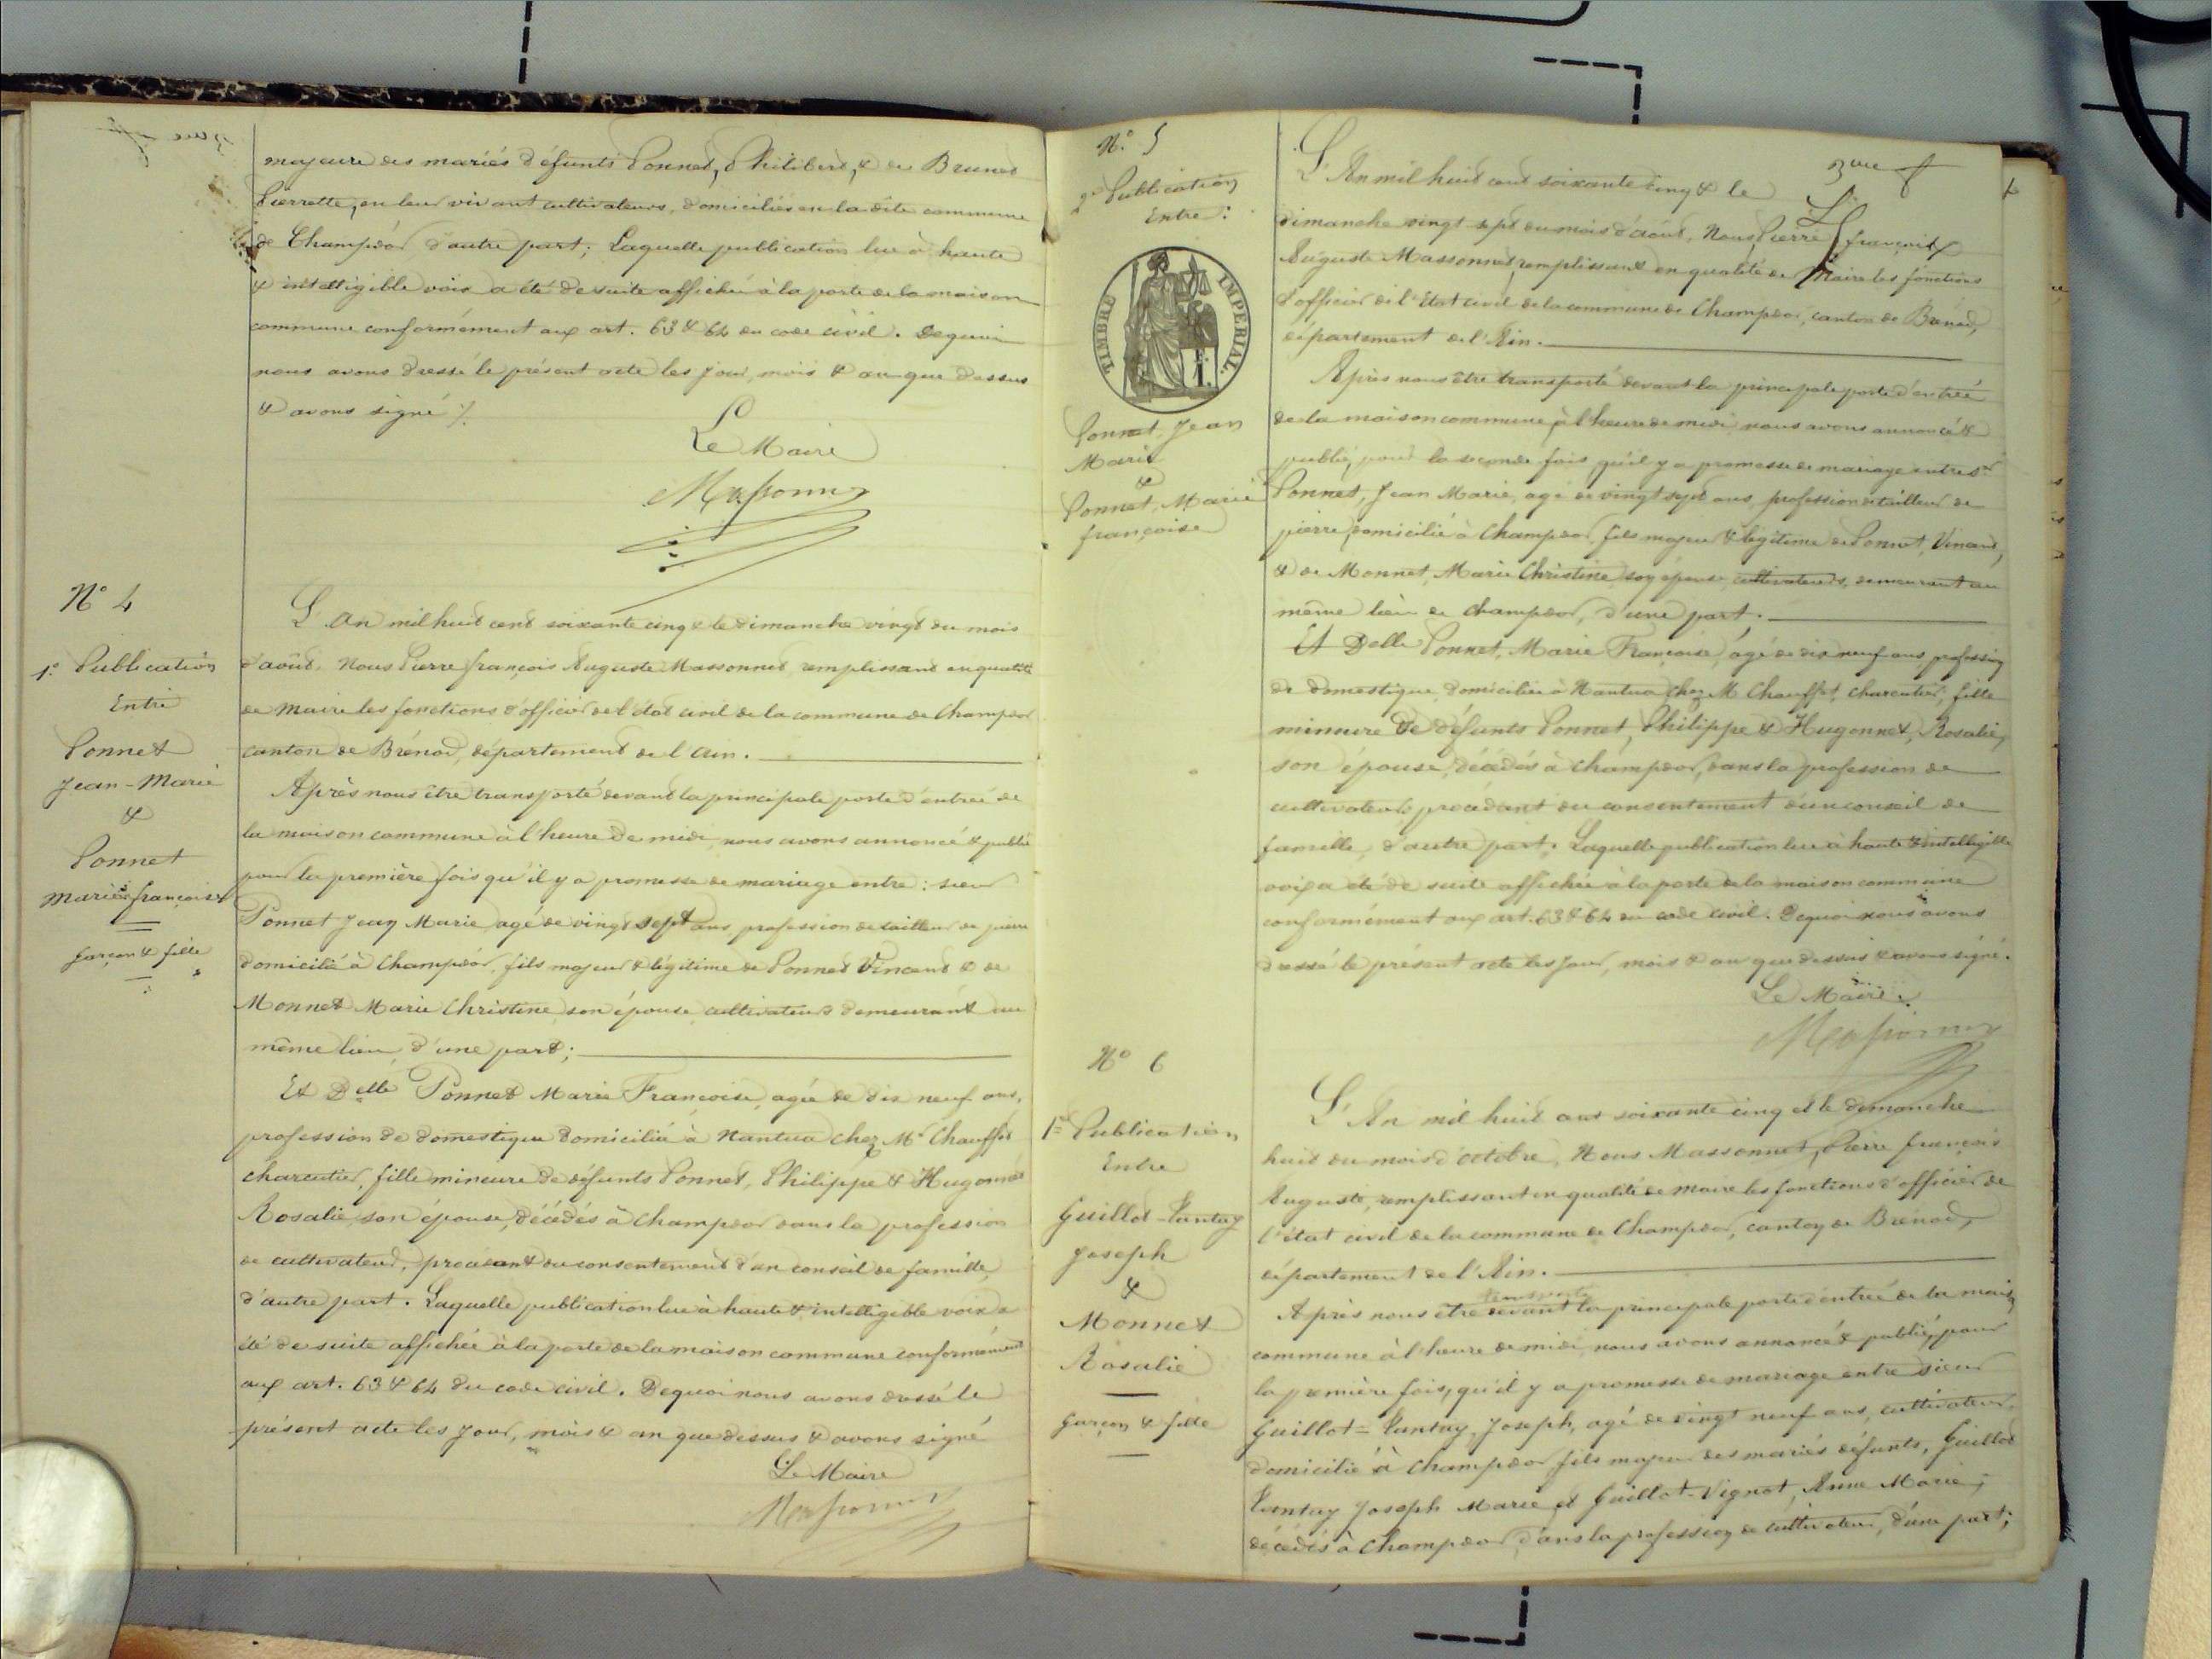 majeure des mariés défunts Ponnet, Philibert, & de Brunet
Pierrette, en leur vivant cultivateurs, domiciliés en la dite commune
de Champdor d'autre part; Laquelle publication lue à haute
& intelligible voix a été de suite affichée à la porte de la maison
commune conformément aux art. 63 & 64 du code civil. De quoi
nous avons dressé le présent acte les jour, mois & an que dessus
& avons signé
Le Maire
Massonnet
N° 4
1e Publication
Entre
Ponnet
Jean-Marie
&
Ponnet
Marie françoise
garçon & fille
L'An mil huit cent soixante cinq & le dimanche vingt du mois
d'août. Nous Pierre françois Auguste Massonnet remplissant en qualité
de Maire les fonctions d'officier de l'état civil de la commune de Champdor
canton de Brénod, département de l'Ain.
Après nous être transporté devant la principale porte d'entrée de
la maison commune à l'heure de midi, nous avons annoncé & publié
pour la première fois qu'il y a promesse de mariage entre : sieur
Ponnet Jean Marie agé de vingt sept ans profession de tailleur de pierre
domicilié à Champdor, fils majeur & légitime de Ponnet Vincent & de
Monnet Marie Christine son épouse cultivateurs demeurant au
même lieu, d'une part;
Et Delle Ponnet Marie Françoise, agée de dix neuf ans,
profession de domestique domiciliée à Nantua chez Mr Chauffet
charcutier, fille mineure de défunts Ponnet, Philippe & Hugonnet
Rosalie son épouse, décédés à Champdor dans la profession
de cultivateurs, procédant du consentement d'un conseil de famille,
d'autre part. Laquelle publication lue à haute & intelligible voix a
été de suite affichée à la porte de la maison commune conformément
aux art. 63 & 64 du code civil. De quoi nous avons dressé le
présent acte les jour, mois & an que dessus & avons signé
Le Maire
Massonnet
N° 5
2e Publication
Entre :
TIMBRE IMPERIAL
Ponnet, Jean
Marie
&
Ponnet, Marie
françoise
3me f
L'An mil huit cent soixante cinq & le
dimanche vingt sept du mois d'août, Nous Pierre françois
Auguste Massonnet, remplissant en qualité de Maire les fonctions
d'officier de l'Etat civil de la commune de Champdor, canton de Brénod,
département de l'Ain.
Après nous être transporté devant la principale porte d'entrée
de la maison commune, à l'heure de midi, nous avons annoncé &
publié, pour la seconde fois, qu'il y a promesse de mariage entre sr
Ponnet, Jean Marie, agé de vingt sept ans, profession de tailleur de
pierre, domicilié à Champdor, fils majeur & légitime de Ponnet, Vincent,
& de Monnet, Marie Christine, son épouse, cultivateurs, demeurant au
même lieu de champdor, d'une part.
Et Delle Ponnet, Marie Françoise, agé de dix neuf ans, profession
de domestique, domiciliée à Nantua chez M Chauffet, charcutier, fille
mineure de défunts Ponnet, Philippe & Hugonnet, Rosalie,
son épouse, décédés à champdor, dans la profession de
cultivateurs, procédant du consentement d'un conseil de
famille, d'autre part. Laquelle publication lue à haute & intelligible
voix a été de suite affichée à la porte de la maison commune
conformément aux art. 63 & 64 du code civil. De quoi nous avons
dressé le présent acte les jour, mois & an que dessus & avons signé.
Le Maire
Massonnet
N° 6
1re Publication
Entre
Guillot-Pantay
Joseph
&
Monnet
Rosalie
garçon & fille
L'An mil huit cent soixante cinq et le dimanche
huit du mois d'octobre, Nous Massonnet, Pierre françois
Auguste, remplissant en qualité de Maire les fonctions d'officier de
l'état civil de la commune de Champdor, canton de Brénod,
département de l'Ain.
Après nous être transporté devant la principale porte d'entrée de la maison
commune à l'heure de midi, nous avons annoncé & publié, pour
la première fois, qu'il y a promesse de mariage entre sieur
Guillot-Pantay, Joseph, agé de vingt neuf ans, cultivateur,
domicilié à Champdor, fils majeur des mariés défunts, Guillot
Pantay Joseph Marie et Guillot-Vignot, Anne Marie,
décédés à Champdor, dans la profession de cultivateur, d'une part;